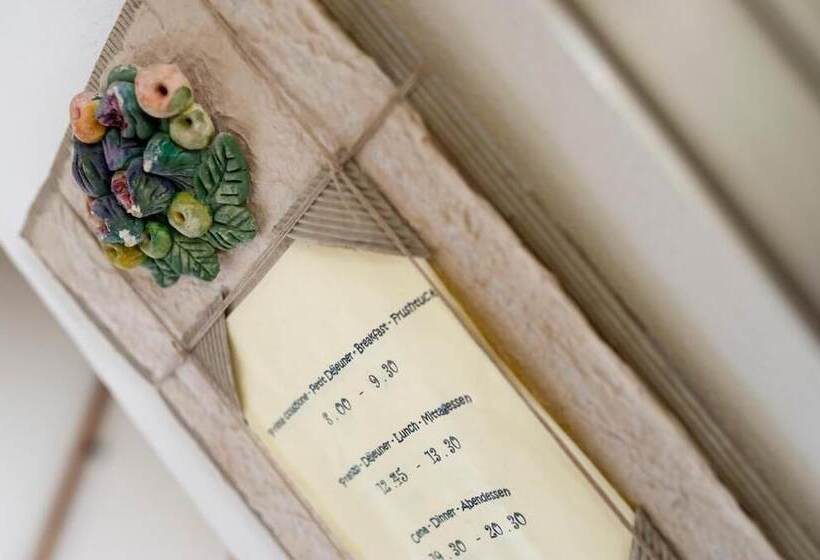 Prima colazione - Petit Déjeuner - Breakfast - Frühstück
8.00 - 9.30
Pranzo - Déjeuner - Lunch - Mittagessen
12.15 - 13.30
Cena - Dinner - Abendessen
19.30 - 20.30